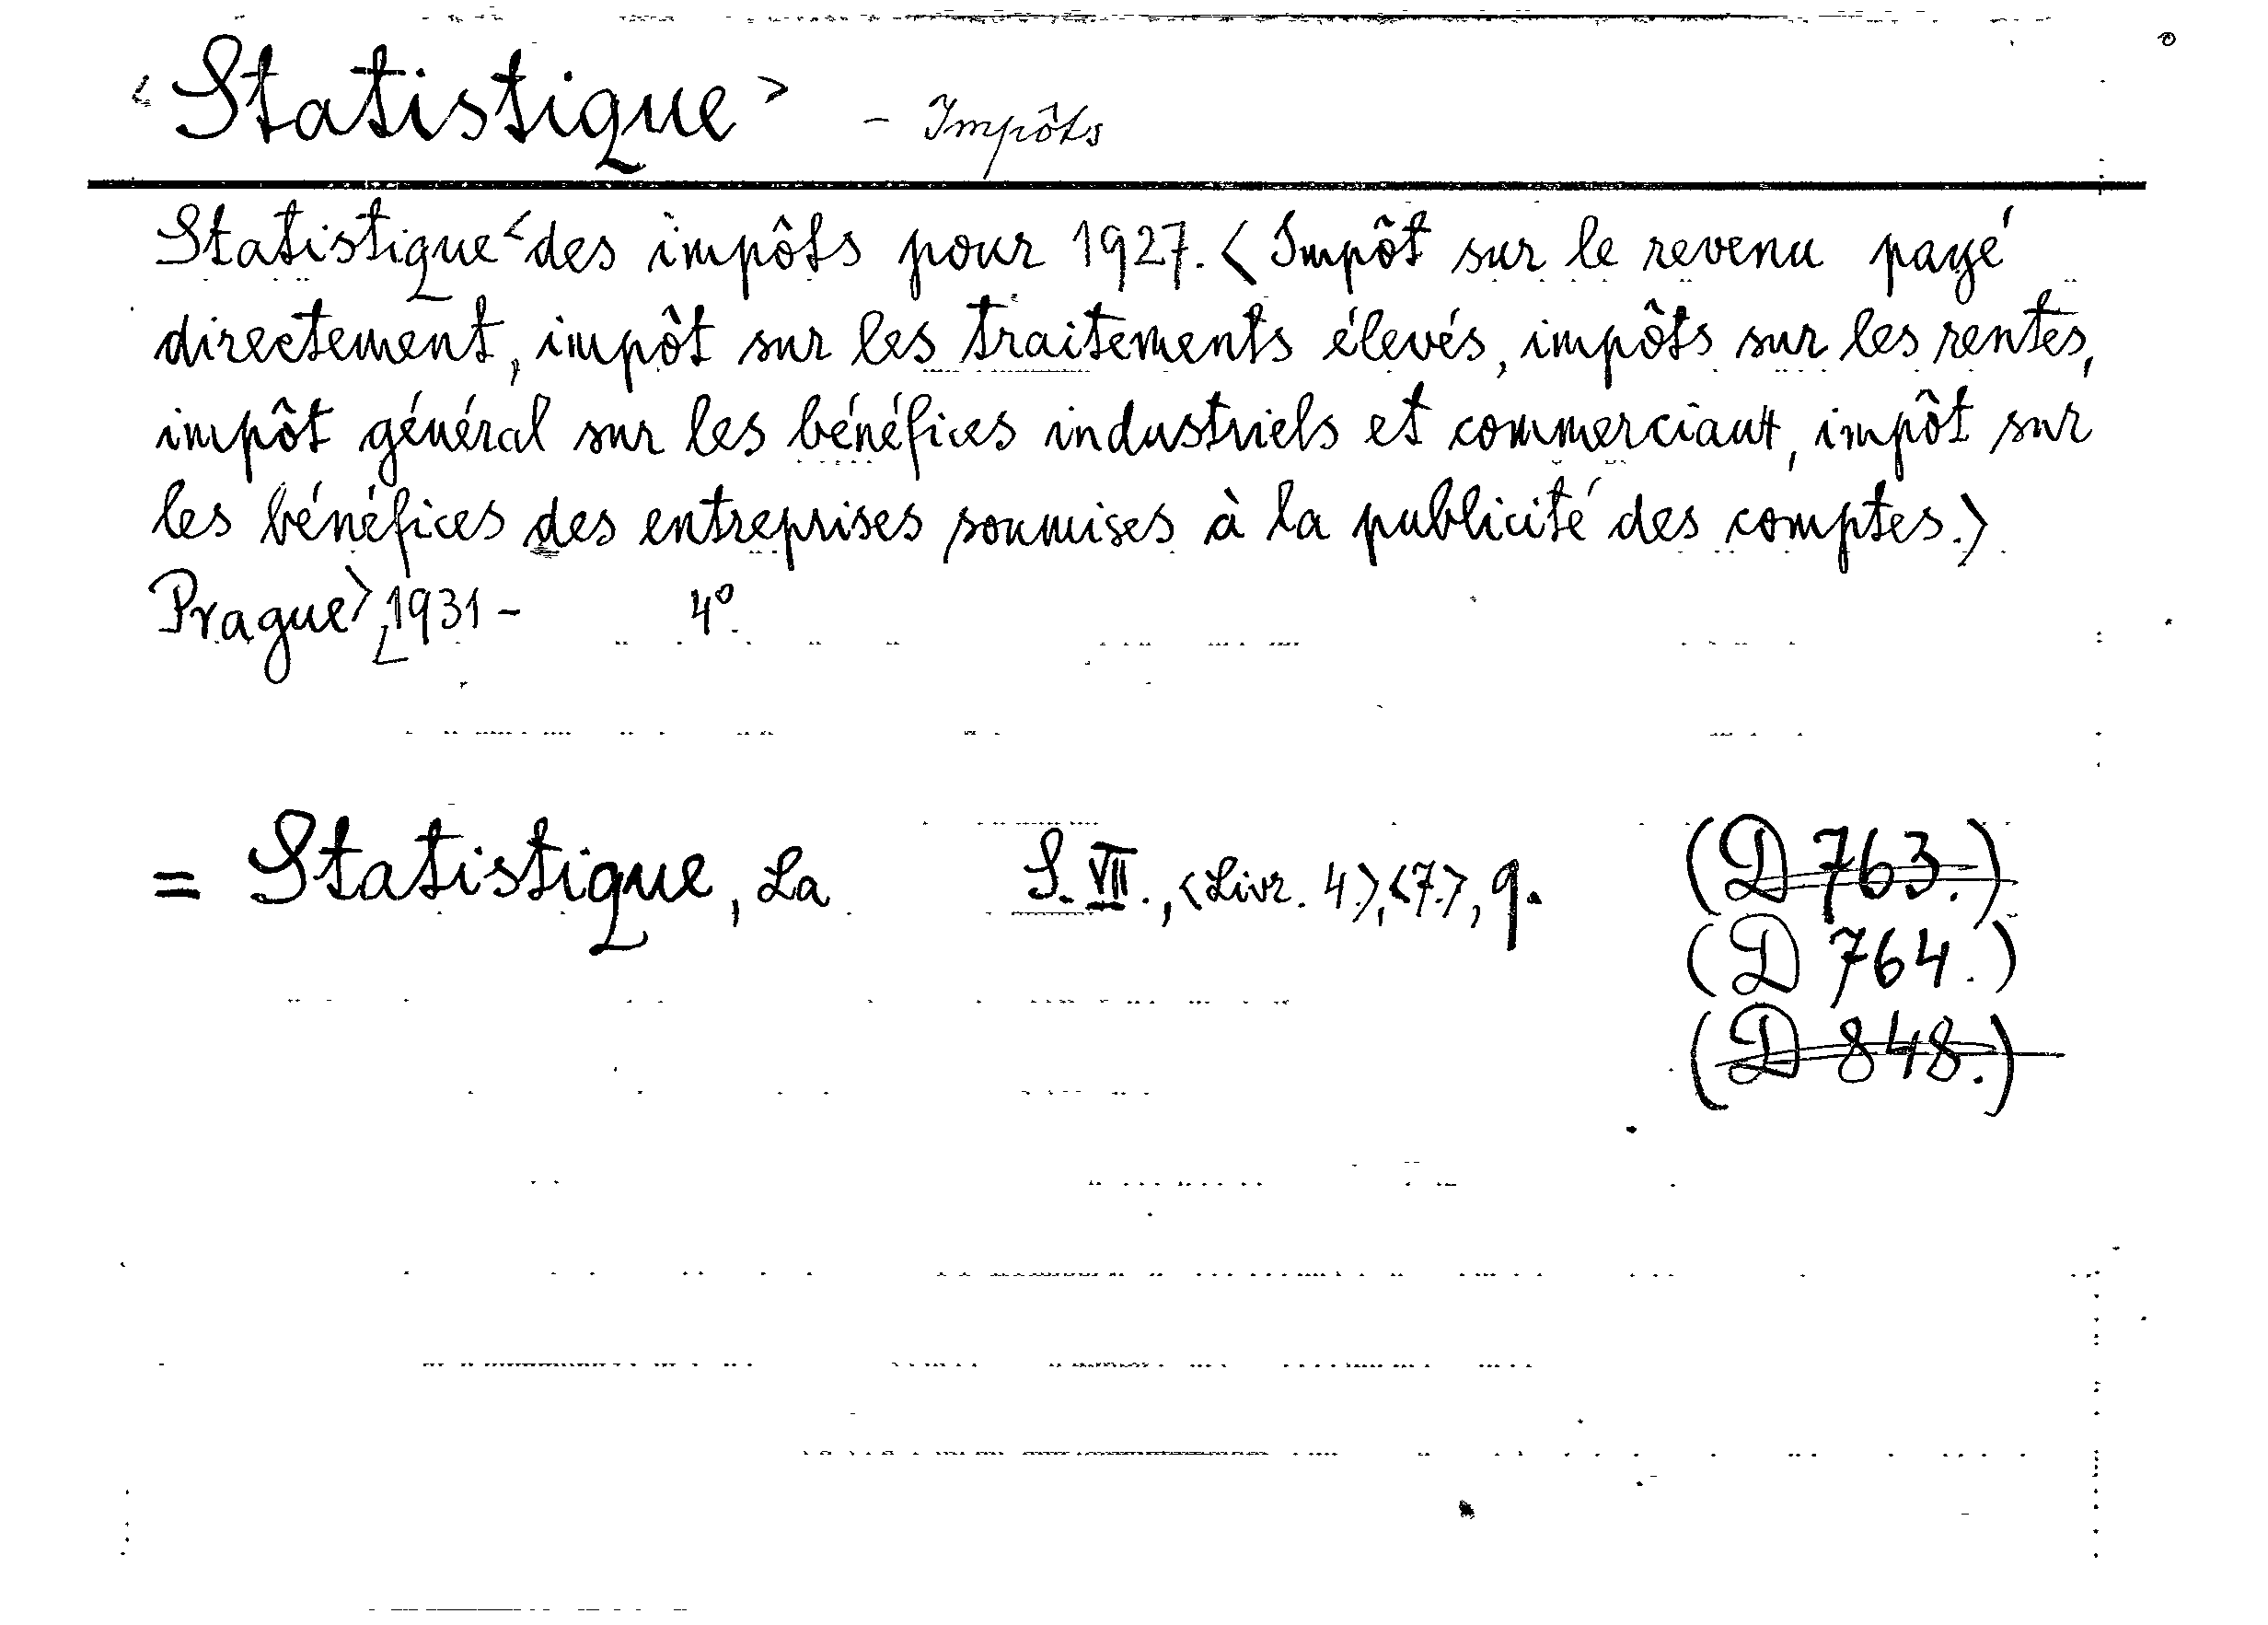 <Statistique> - Impôts
Statistique <des impôts pour 1927. <Impôt sur le revenu payé
directement, impôt sur les traitements élevés, impôts sur les rentes,
impôt général sur les bénéfices industriels et commerciaux, impôt sur
les bénéfices des entreprises soumises à la publicité des comptes.>
Prague> 1931 - 4°
= Statistique, La S. VII., <Livr. 4.>, <7.>, 9. (D 763.)
(D 764.)
(D 848.)